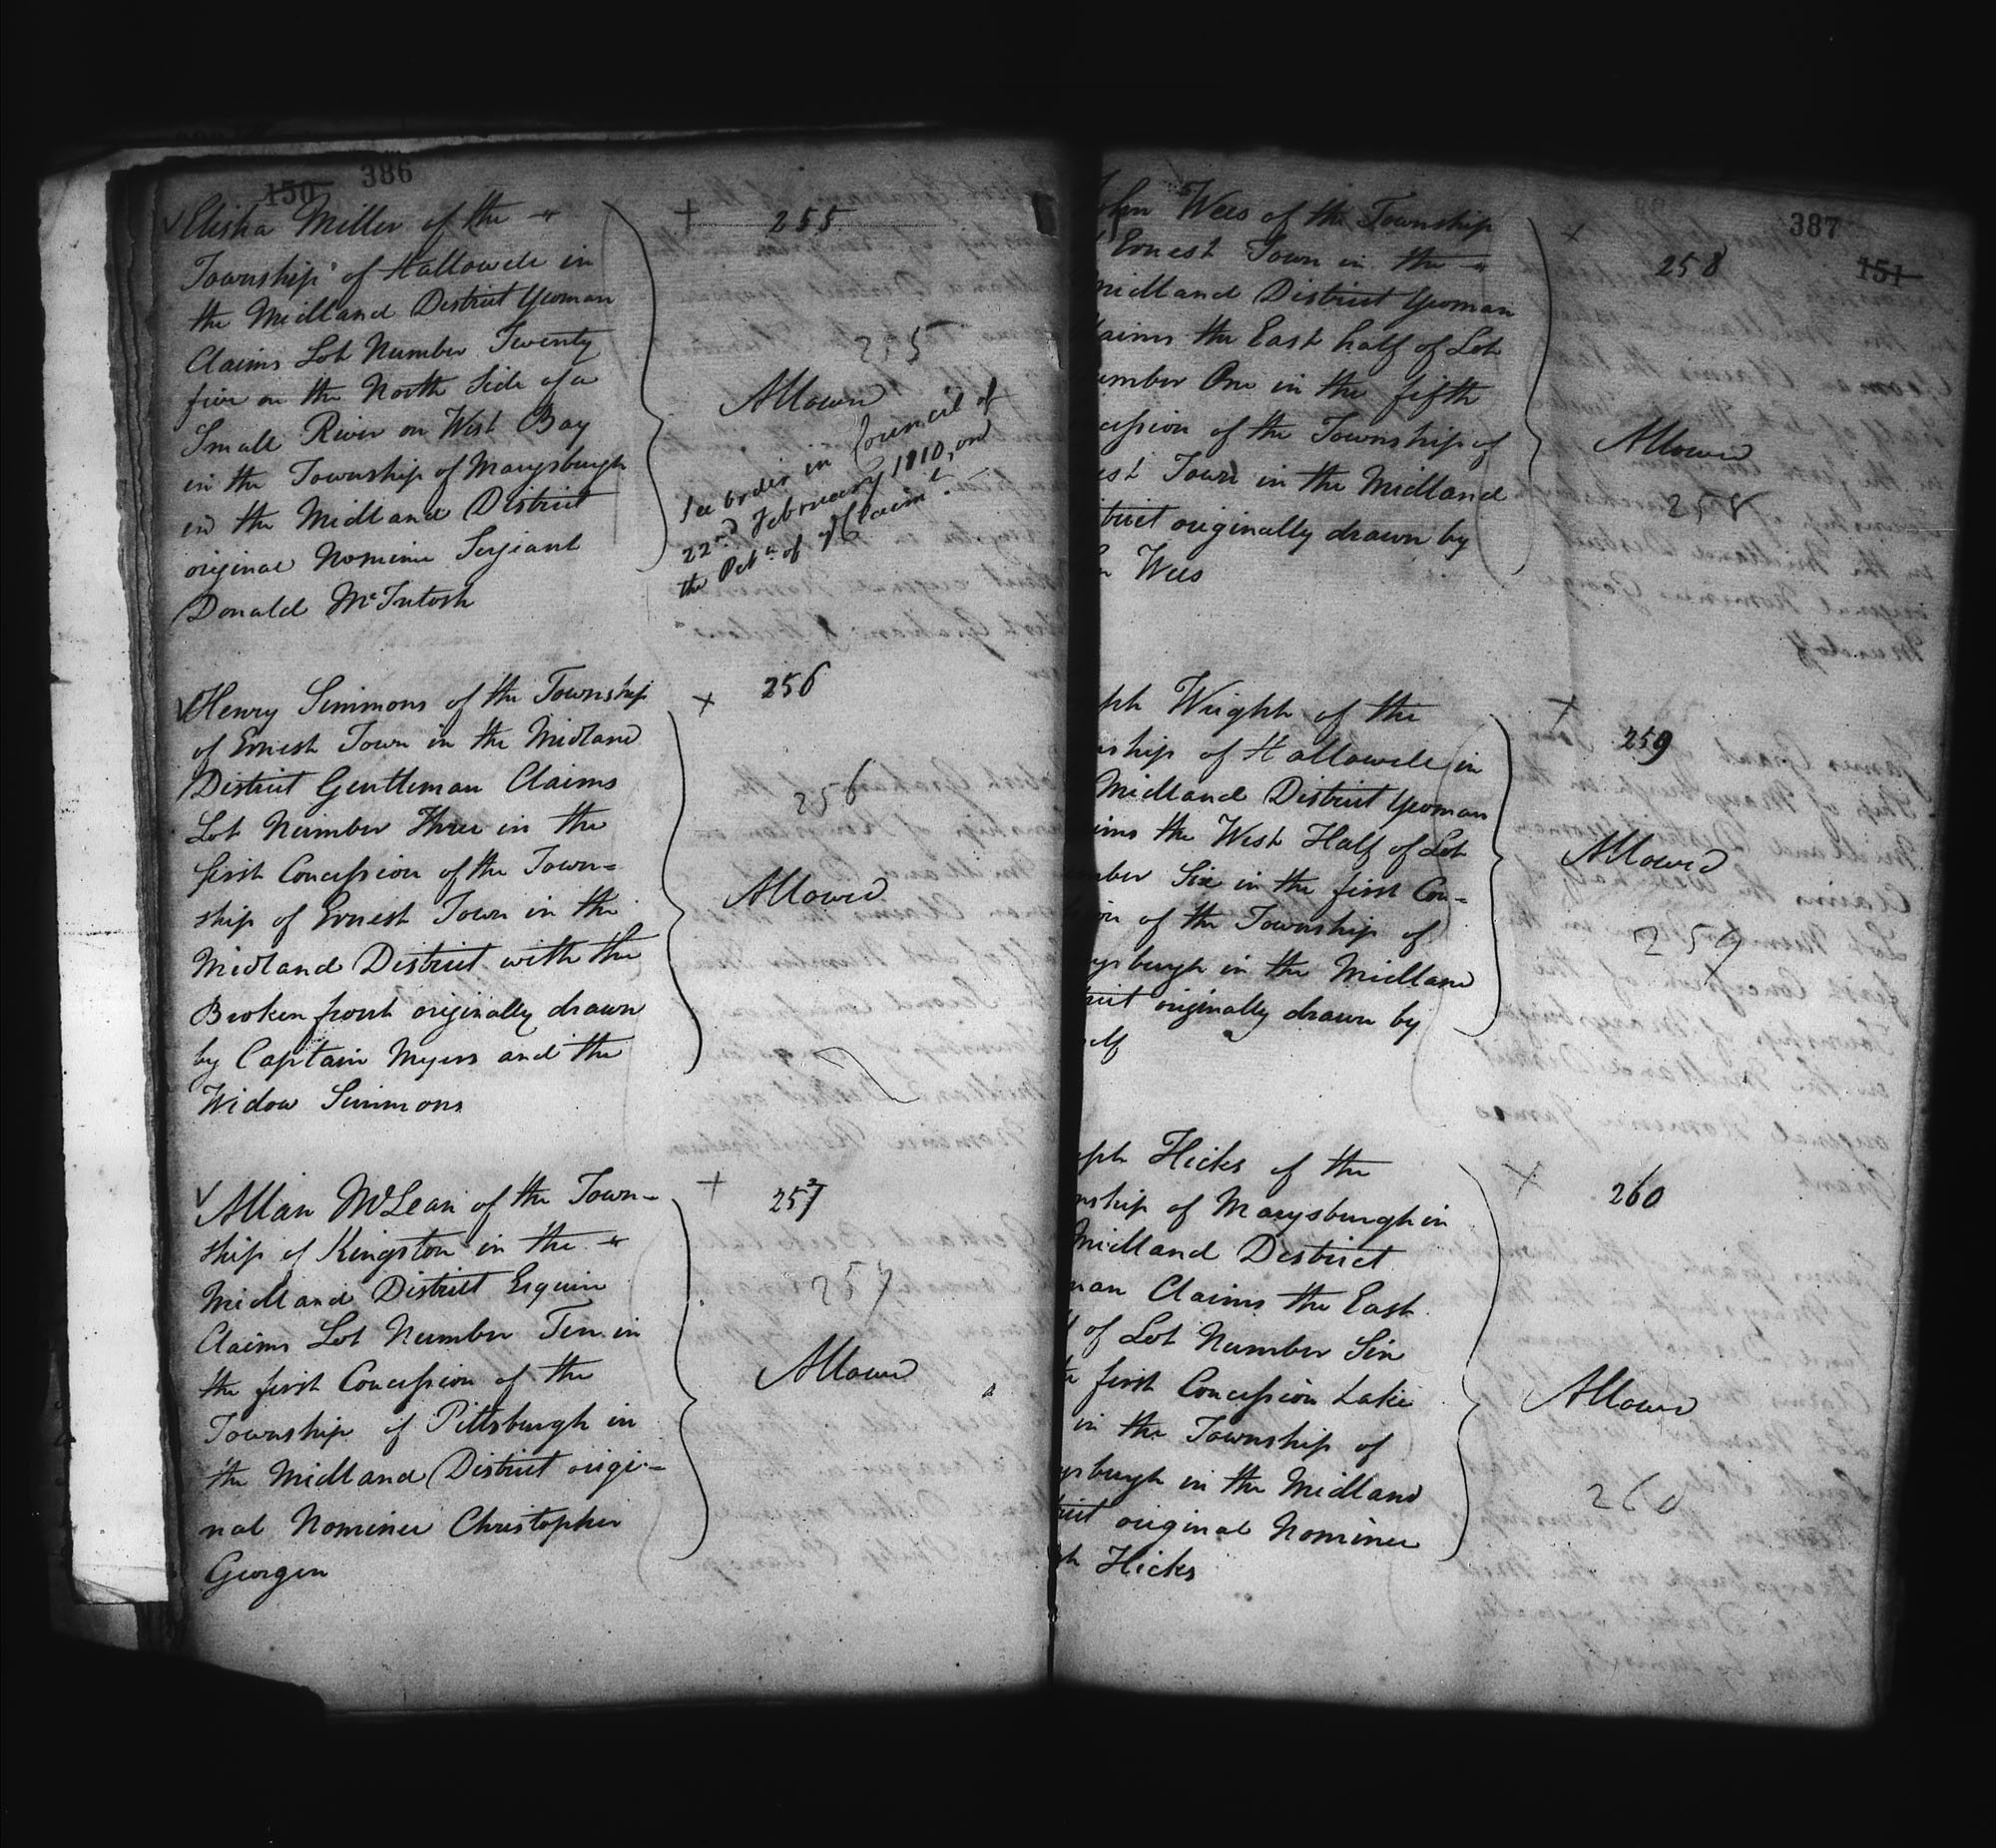 150 386
Elisha Miller of the
Township of Hallowell in
the Midland District Yeoman
Claims Lot Number Twenty
five on the North Side of a
Small River on West Bay
in the Township of Marysburgh
in the Midland District
original Nominee Serjeant
Donald McIntosh
+ 255
255
Allowed
See order in Council of
22nd February 1810, on
the Petn of ye Claimt.
Henry Simmons of the Township
of Ernest Town in the Midland
District Gentleman Claims
Lot Number Three in the
first Concession of the Town=
ship of Ernest Town in the
Midland District with the
Broken front originally drawn
by Captain Myers and the
Widow Simmons
+ 256
256
Allowed
Allan McLean of the Town-
ship of Kingston in the
Midland District Esquire
Claims Lot Number Ten in
the first Concession of the
Township of Pittsburgh in
the Midland District origi-
nal Nominee Christopher
Georgen
+ 257
257
Allowed
387
151
ohn Wees of the Township
Ernest Town in the
midland District Yeoman
laims the East half of Lot
umber One in the fifth
cession of the Township of
est Town in the Midland
trict originally drawn by
n Wees
+ 258
Allowed
258
ph Wright of the
nship of Hallowell in
Midland District Yeoman
ims the West Half of Lot
mber Six in the first Con-
ion of the Township of
ysburgh in the Midland
trict originally drawn by
self
+ 259
Allowed
259
eph Hicks of the
nship of Marysburgh in
Midland District
man Claims the East
of Lot Number Six
first Concession Lake
in the Township of
ysburgh in the Midland
trict original Nominee
ph Hicks
+ 260
Allowed
260